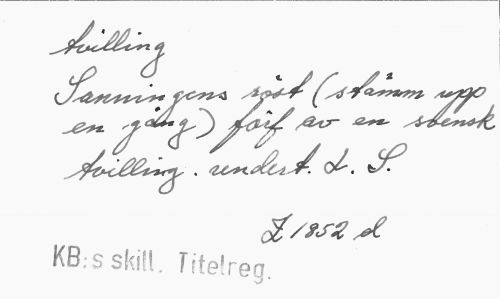 tvilling
Sanningens röst (stämm upp
en gång) förf av en svensk
tvilling. undert. L. S.
Z 1852 d
KB:s skill. Titelreg.